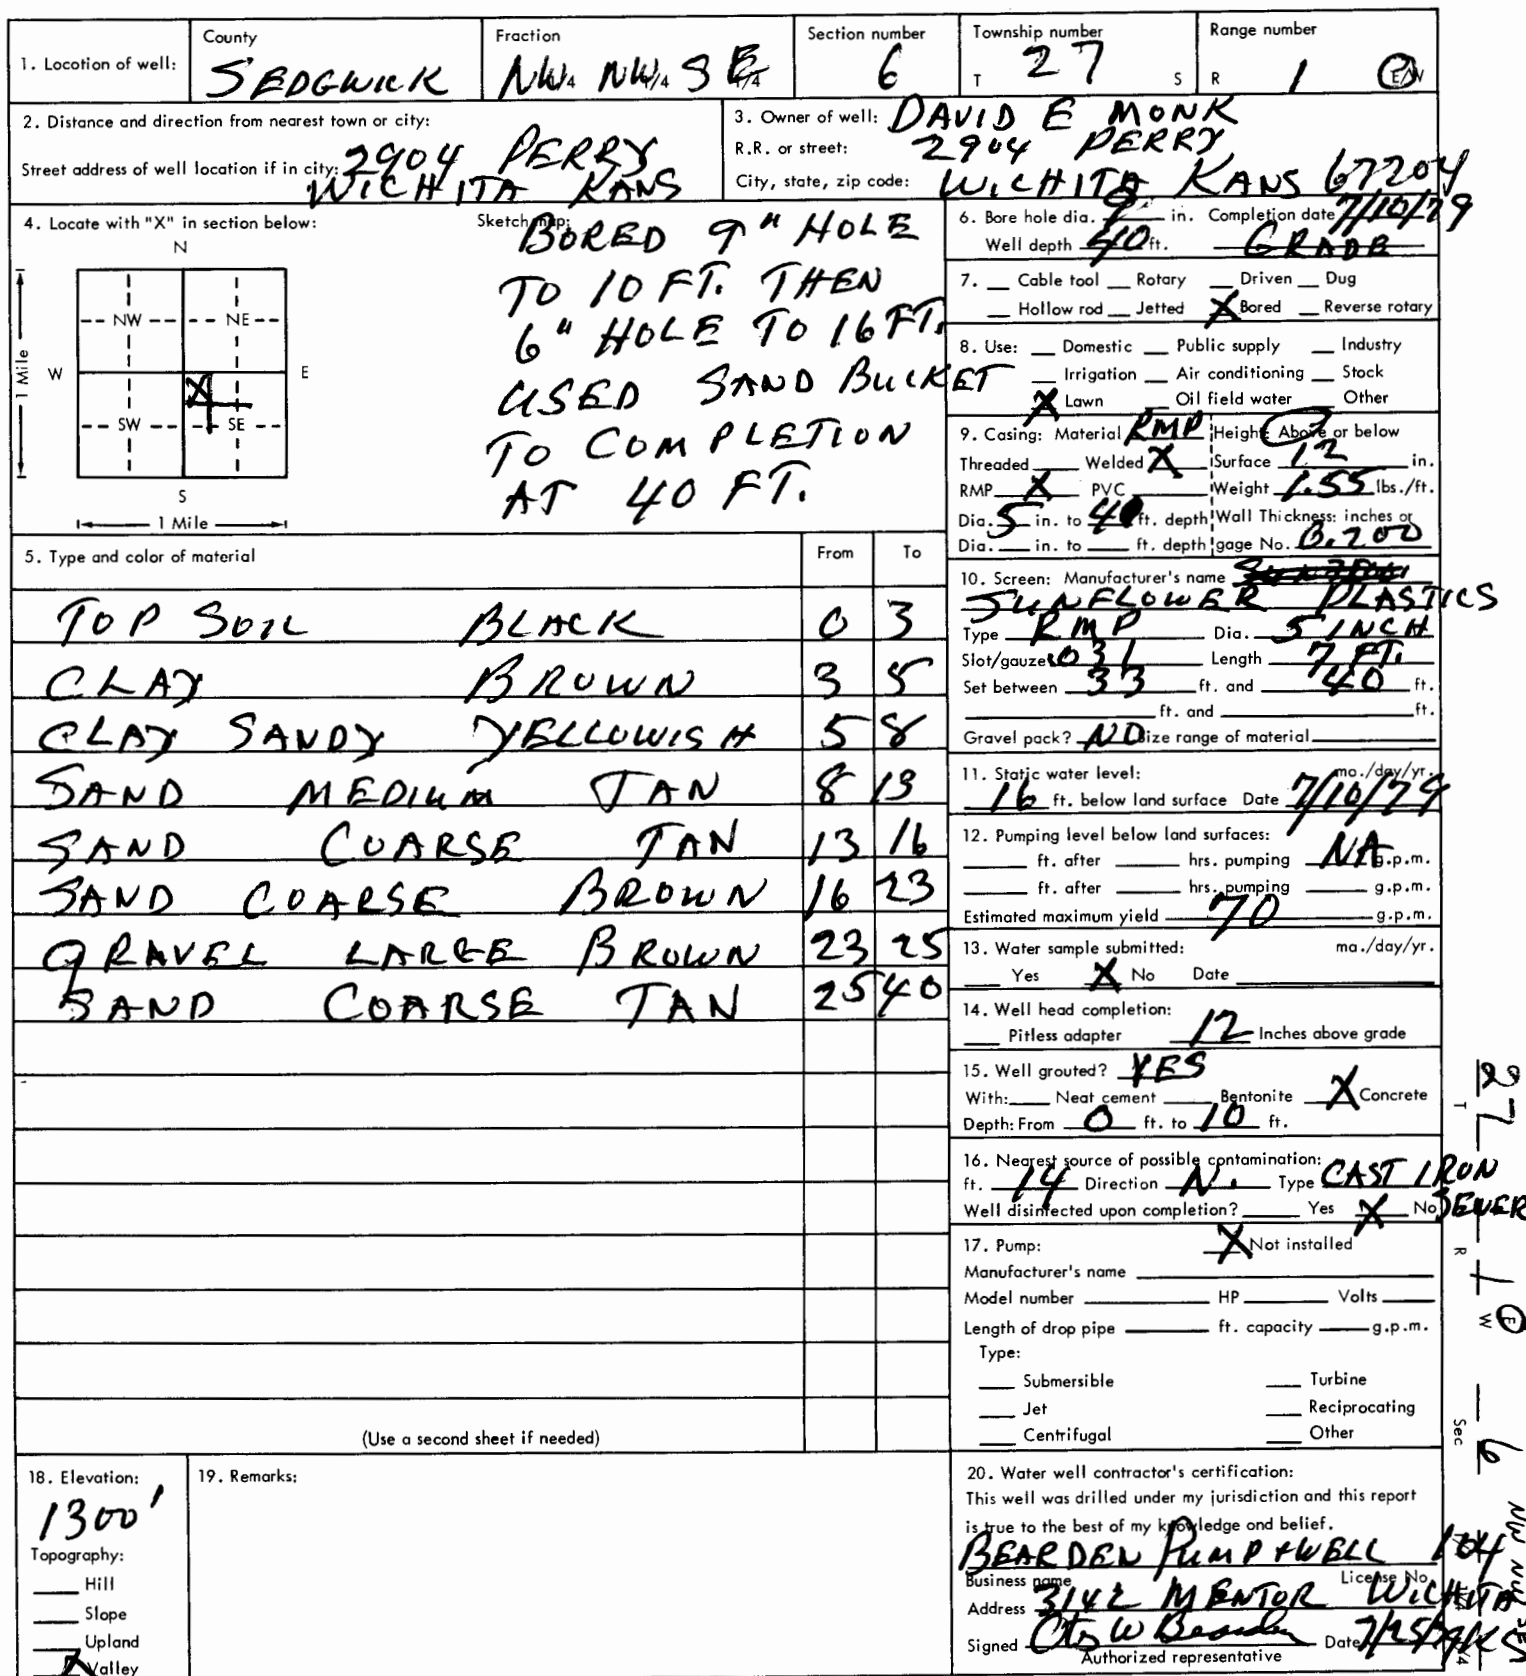 1. Location of well:
County
SEDGWICK
Fraction
NW1/4 NW1/4 SE1/4
Section number
6
Township number
T 27 S
Range number
R 1 E/W
2. Distance and direction from nearest town or city:
Street address of well location if in city: 2904 PERRY
WICHITA KANS
3. Owner of well: DAVID E MONK
R.R. or street: 2904 PERRY
City, state, zip code: WICHITA KANS 67204
4. Locate with "X" in section below:
N
NW NE
W E
X
SW SE
S
1 Mile
1 Mile
Sketch map:
BORED 9" HOLE
TO 10 FT. THEN
6" HOLE TO 16 FT.
USED SAND BUCKET
TO COMPLETION
AT 40 FT.
5. Type and color of material From To
TOP SOIL BLACK 0 3
CLAY BROWN 3 5
CLAY SANDY YELLOWISH 5 8
SAND MEDIUM TAN 8 13
SAND COARSE TAN 13 16
SAND COARSE BROWN 16 23
GRAVEL LARGE BROWN 23 25
SAND COARSE TAN 25 40
(Use a second sheet if needed)
6. Bore hole dia. 9 in. Completion date 7/10/79
Well depth 40 ft. GRADE
7. Cable tool Rotary Driven Dug
Hollow rod Jetted X Bored Reverse rotary
8. Use: Domestic Public supply Industry
Irrigation Air conditioning Stock
X Lawn Oil field water Other
9. Casing: Material RMP Height: Above or below
Threaded Welded X Surface 12 in.
RMP X PVC Weight 1.55 lbs./ft.
Dia. 5 in. to 40 ft. depth Wall Thickness: inches or
Dia. in. to ft. depth gage No. 0.200
10. Screen: Manufacturer's name
SUNFLOWER PLASTICS
Type RMP Dia. 5 INCH
Slot/gauze .031 Length 7 FT.
Set between 33 ft. and 40 ft.
ft. and ft.
Gravel pack? NO Size range of material
11. Static water level: mo./day/yr.
16 ft. below land surface Date 7/10/79
12. Pumping level below land surfaces:
ft. after hrs. pumping NA g.p.m.
ft. after hrs. pumping g.p.m.
Estimated maximum yield 70 g.p.m.
13. Water sample submitted: mo./day/yr.
Yes X No Date
14. Well head completion:
Pitless adapter 12 Inches above grade
15. Well grouted? YES
With: Neat cement Bentonite X Concrete
Depth: From 0 ft. to 10 ft.
16. Nearest source of possible contamination:
ft. 14 Direction N. Type CAST IRON
Well disinfected upon completion? Yes X No SEWER
17. Pump: X Not installed
Manufacturer's name
Model number HP Volts
Length of drop pipe ft. capacity g.p.m.
Type:
Submersible Turbine
Jet Reciprocating
Centrifugal Other
18. Elevation:
1300'
Topography:
Hill
Slope
Upland
X Valley
19. Remarks:
20. Water well contractor's certification:
This well was drilled under my jurisdiction and this report
is true to the best of my knowledge and belief.
BEARDEN PUMP + WELL 104
Business name License No.
Address 3142 MENTOR WICHITA
Signed Otis W Bearden Date 7/25/79 KS
Authorized representative
T 27 R 1 E W Sec 6 NW NW SE 1/4